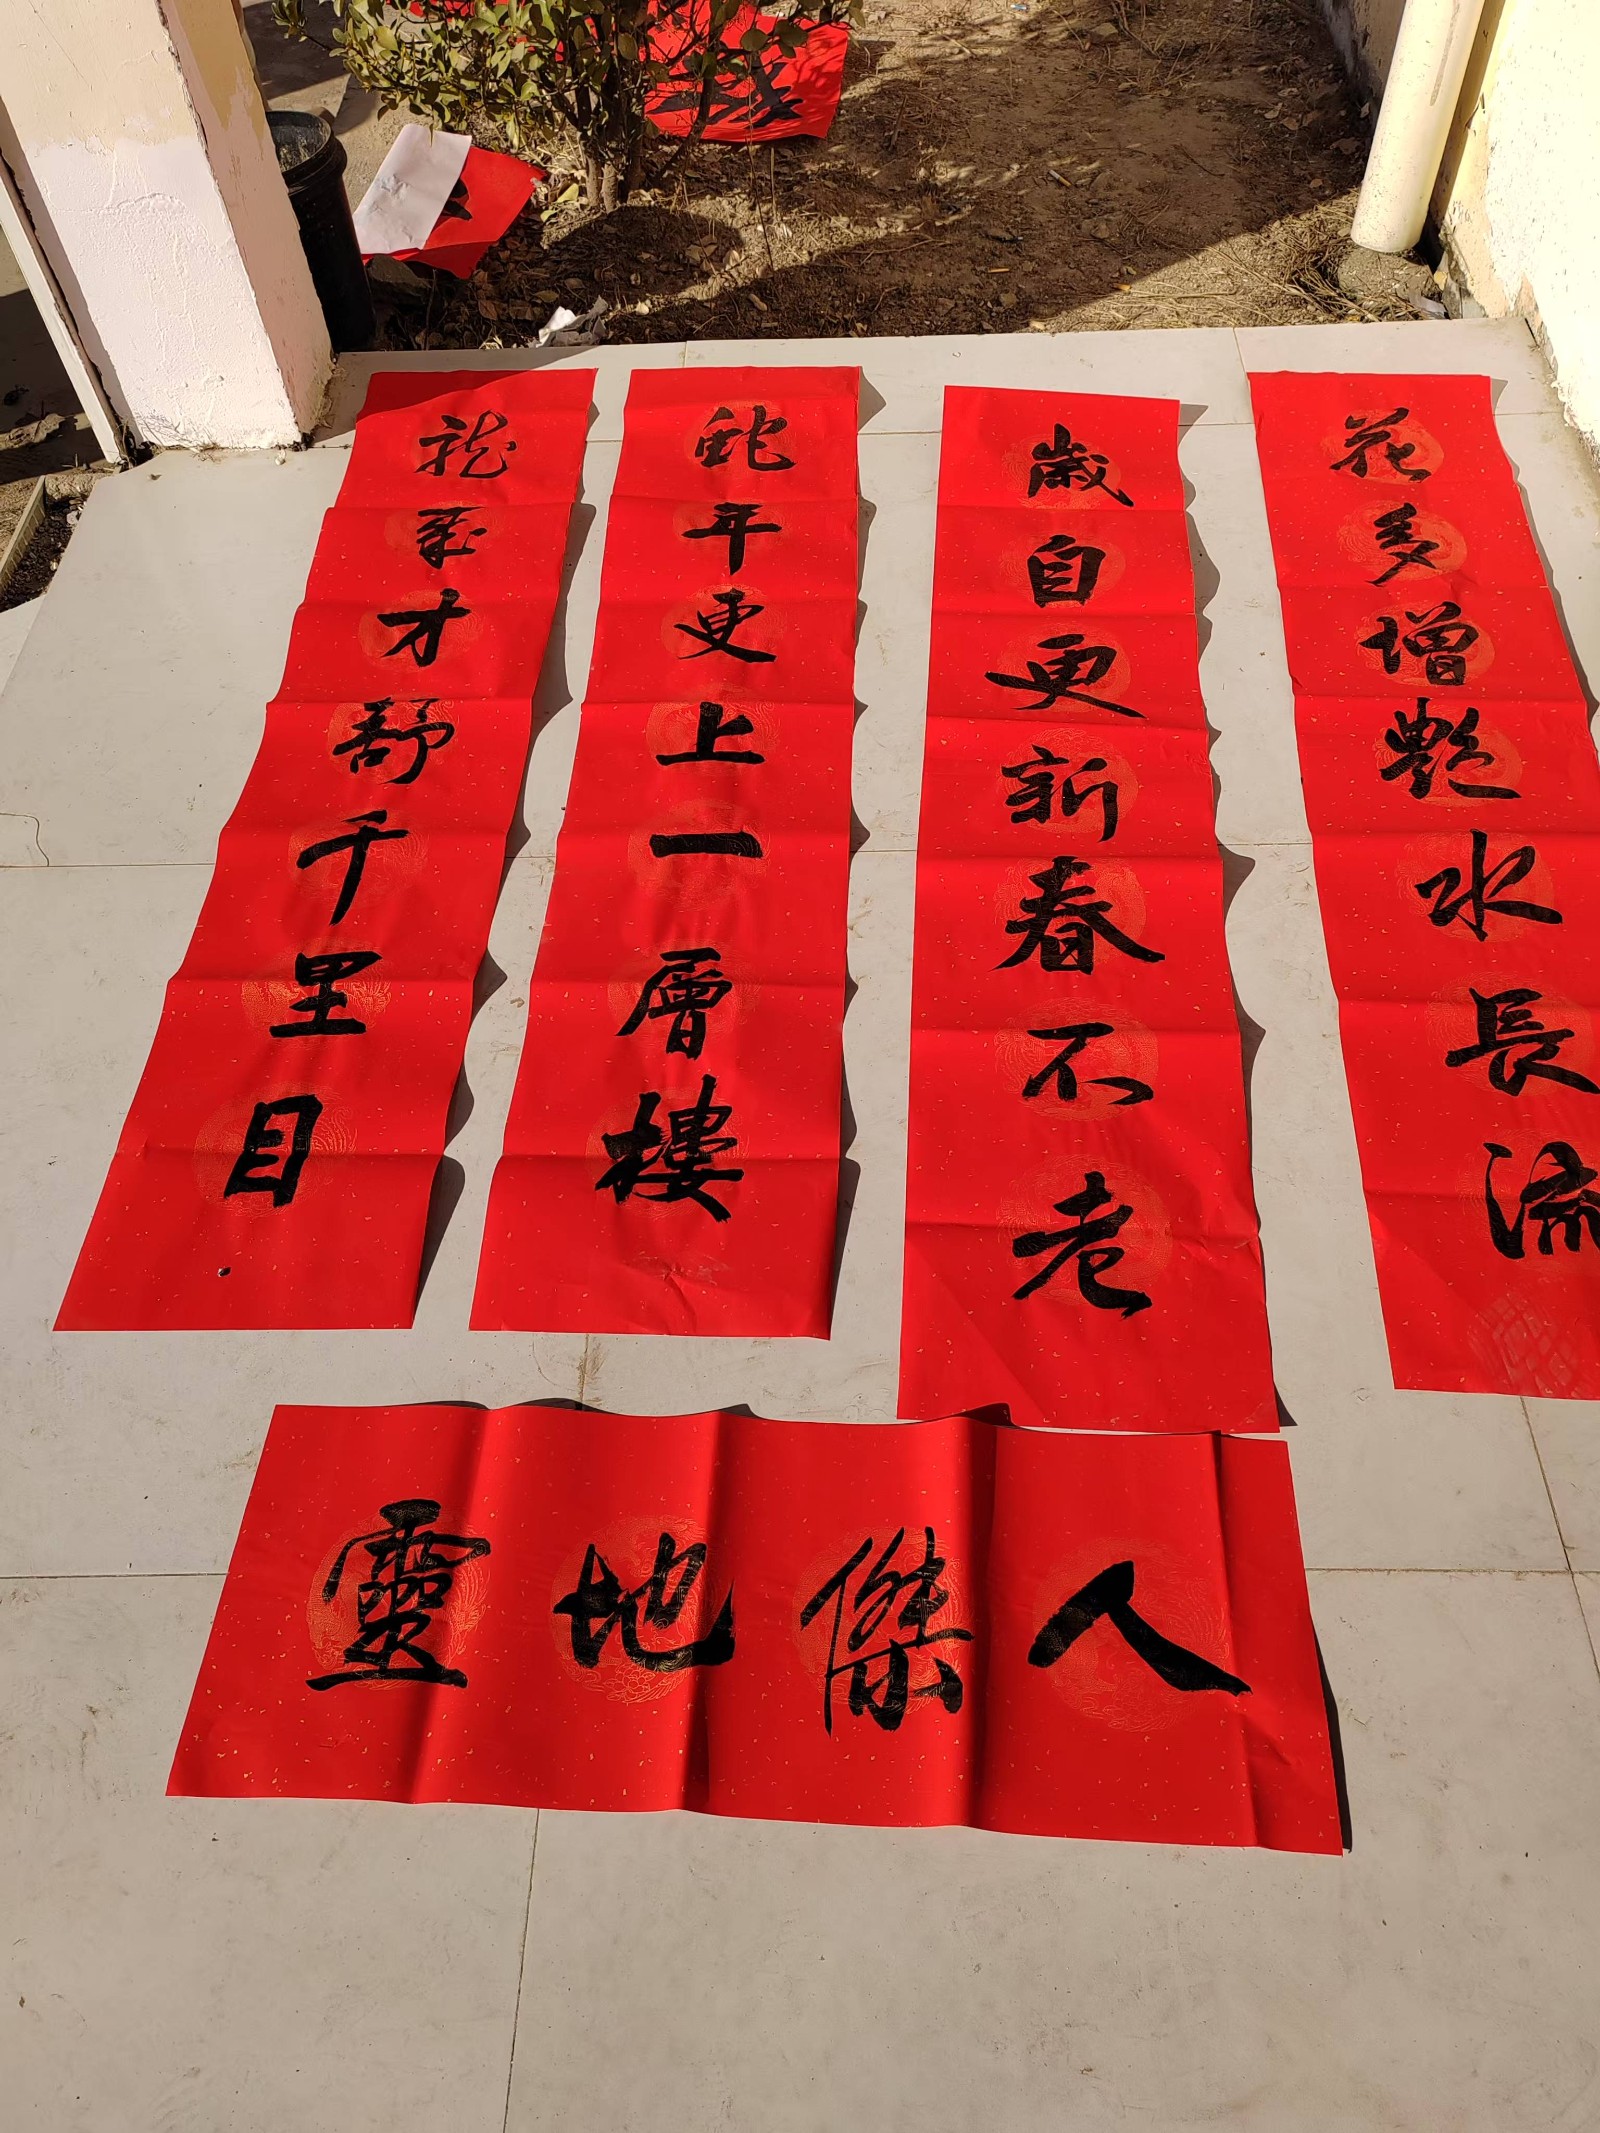 龍歲才舒千里目
蛇年更上一層樓
歲自更新春不老
花多增艷水長流
人傑地靈